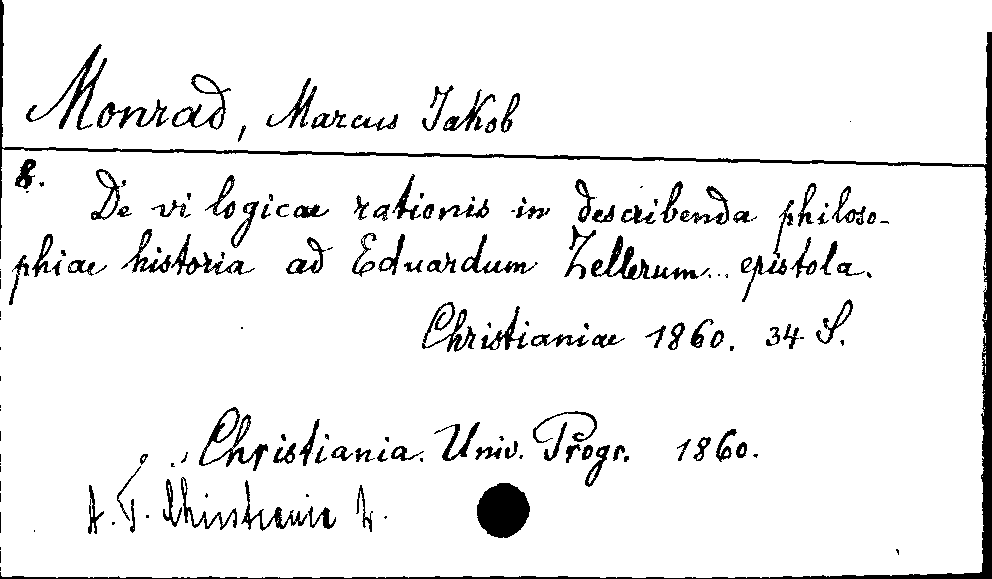 Monrad, Marcus Jakob
8.
De vi logicae rationis in describenda philoso-
phiae historia ad Eduardum Zellerum... epistola.
Christianiae 1860. 34 S.
Christiania. Univ. Progr. 1860.
A. T. Christiania 4.